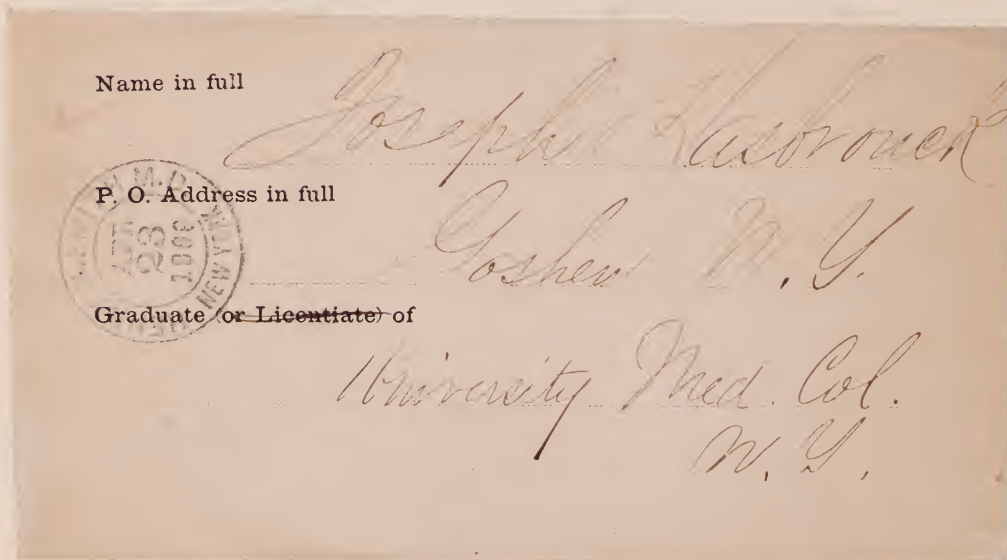 Name in full Joseph Hasbrouck
P. O. Address in full
Goshen N. Y.
Graduate (or Licentiate) of
University Med. Col.
N. Y.
M.D.
NEW YORK
23